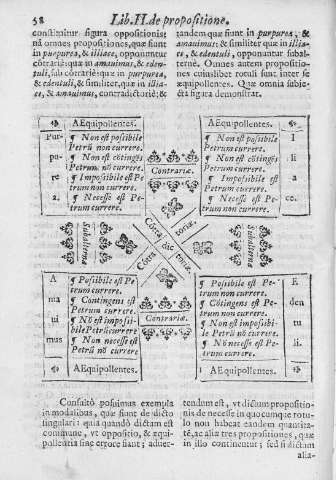 58
Lib. II. de propositione.
constituitur figura oppositionis:
nã omnes propositiones, quæ sunt
in purpurea, & iliace, opponuntur
cõtrariè: quæ in amauimus, & eden-
tuli, sub cõtrariè: quæ in purpurea,
& edentuli, & similiter, quæ in ilia-
ce, & amauimus, contradictoriè: &
tandem quæ sunt in purpurea, &
amauimus: & similiter quæ in illia-
ce, & edentuli, opponuntur subal-
ternè. Omnes autem propositio-
nes cuiuslibet rotuli sunt inter se
æquipollentes. Quæ omnia subie-
cta figura demonstrat.
AEquipollentes.
Pur-
pu-
re
a.
¶ Non est possibile
Petrũ non currere.
¶ Non est cõtingẽs
Petrum nõ currere.
¶ Impossibile est Pe-
trum non currere.
¶ Necesse est Pe-
trum currere.
Contrariæ.
AEquipollentes.
¶ Non est possibile
Petrum currere.
¶ Non est cõtingẽs
Petrum currere.
¶ Impossibile est
Petrum currere.
¶ Necesse est Pe-
trum non currere.
I
li
a
ce.
Subalternæ
Cõtra
toriæ.
dic
Cõtra
toriæ.
Subalternæ
A
ma
ui
mus
¶ Possibile est Pe-
trum currere.
¶ Contingens est
Petrum currere.
¶ Nõ est impossi-
bile Petrũ currere
¶ Non necesse est
Petrũ nõ currere
AEquipollentes.
Contrariæ.
¶ Possibile est Pe-
trum non currere.
¶ Cõtingens est Pe-
trum non currere.
¶ Non est impossibi-
le Petrũ nõ currere.
¶ Nõ necesse est Pe-
trum currere.
E
den
tu
li.
AEquipollentes.
Consultò posuimus exempla
in modalibus, quæ sunt de dicto
singulari: quia quandò dictum est
commune, vt oppositio, & æqui-
pollentia sine errore fiant; aduer-
tendum est, vt dictum propositio-
nis de necesse in quocumque rotu-
lo non habeat eandem quantita-
tẽ, ac alia tres propositiones, quæ
in illo continentur; sed si dictum
alia-